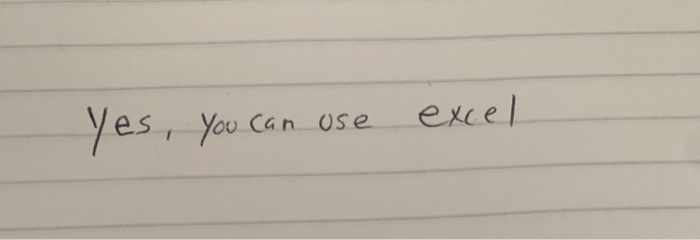 Yes, you can use excel